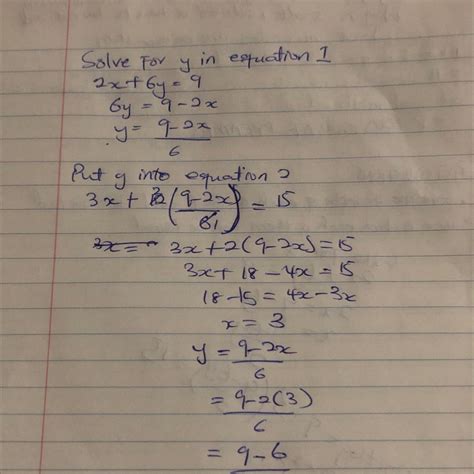 Solve For y in equation 1
2x+6y=9
6y = 9-2x
y = 9-2x
6
Put y into equation 2
3x + (9-2x) = 15
3x = 3x+2(9-2x)=15
3x+18-4x=15
18-15=4x-3x
x = 3
y = 9-2x
6
= 9-2(3)
6
= 9-6